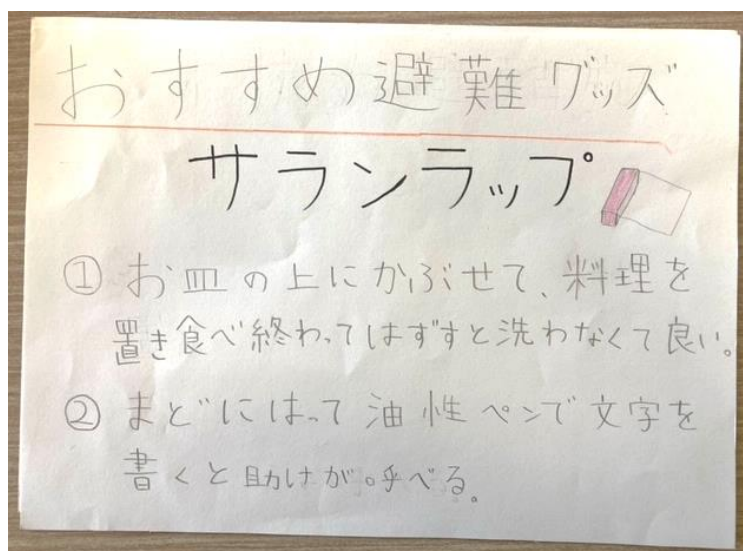 おすすめ避難グッズ
サランラップ
① お皿の上にかぶせて、料理を
置き食べ終わってはずすと洗わなくて良い。
② まどにはって油性ペンで文字を
書くと助けが呼べる。